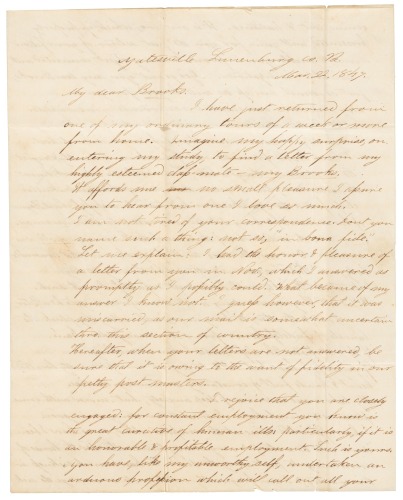 Yattsville Lunenburg co. Va.
Mar. 22, 1847.
My dear Brooks.
I have just returned from
one of my ordinary tours of a week or more
from home. Imagine my happy surprise on
entering my study to find a letter from my
highly esteemed class-mate - my Brooks.
It affords me no small pleasure I assure
you to hear from one I love so much.
I am not tired of your correspondence. Dont you
name such a thing: not so, in bona fide.
Let me explain: I had the honor & pleasure of
a letter from you in Nov. which I answered as
promptly as I possibly could. What became of my
answer I know not. I guess however, that it was
miscarried, as our mail is somewhat uncertain
thro. this section of country.
Hereafter, when your letters are not answered, be
sure that it is owing to the want of fidelity in our
petty post masters.
I rejoice that you are closely
engaged: for constant employment you know is
a great curative of human ills: particularly if it is
an honorable & profitable employment. Such is yours.
You have, like my unworthy self, undertaken an
arduous profession which will call out all your